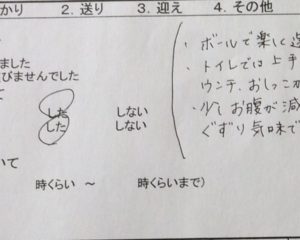 かり 2. 送り 3. 迎え 4. その他
ました
びませんでした
て
した しない
した しない
いて
時くらい ～ 時くらいまで)
・ボールで楽しく
・トイレでは上手
ウンチ、おしっこが
・少しお腹が減
ぐずり気味で